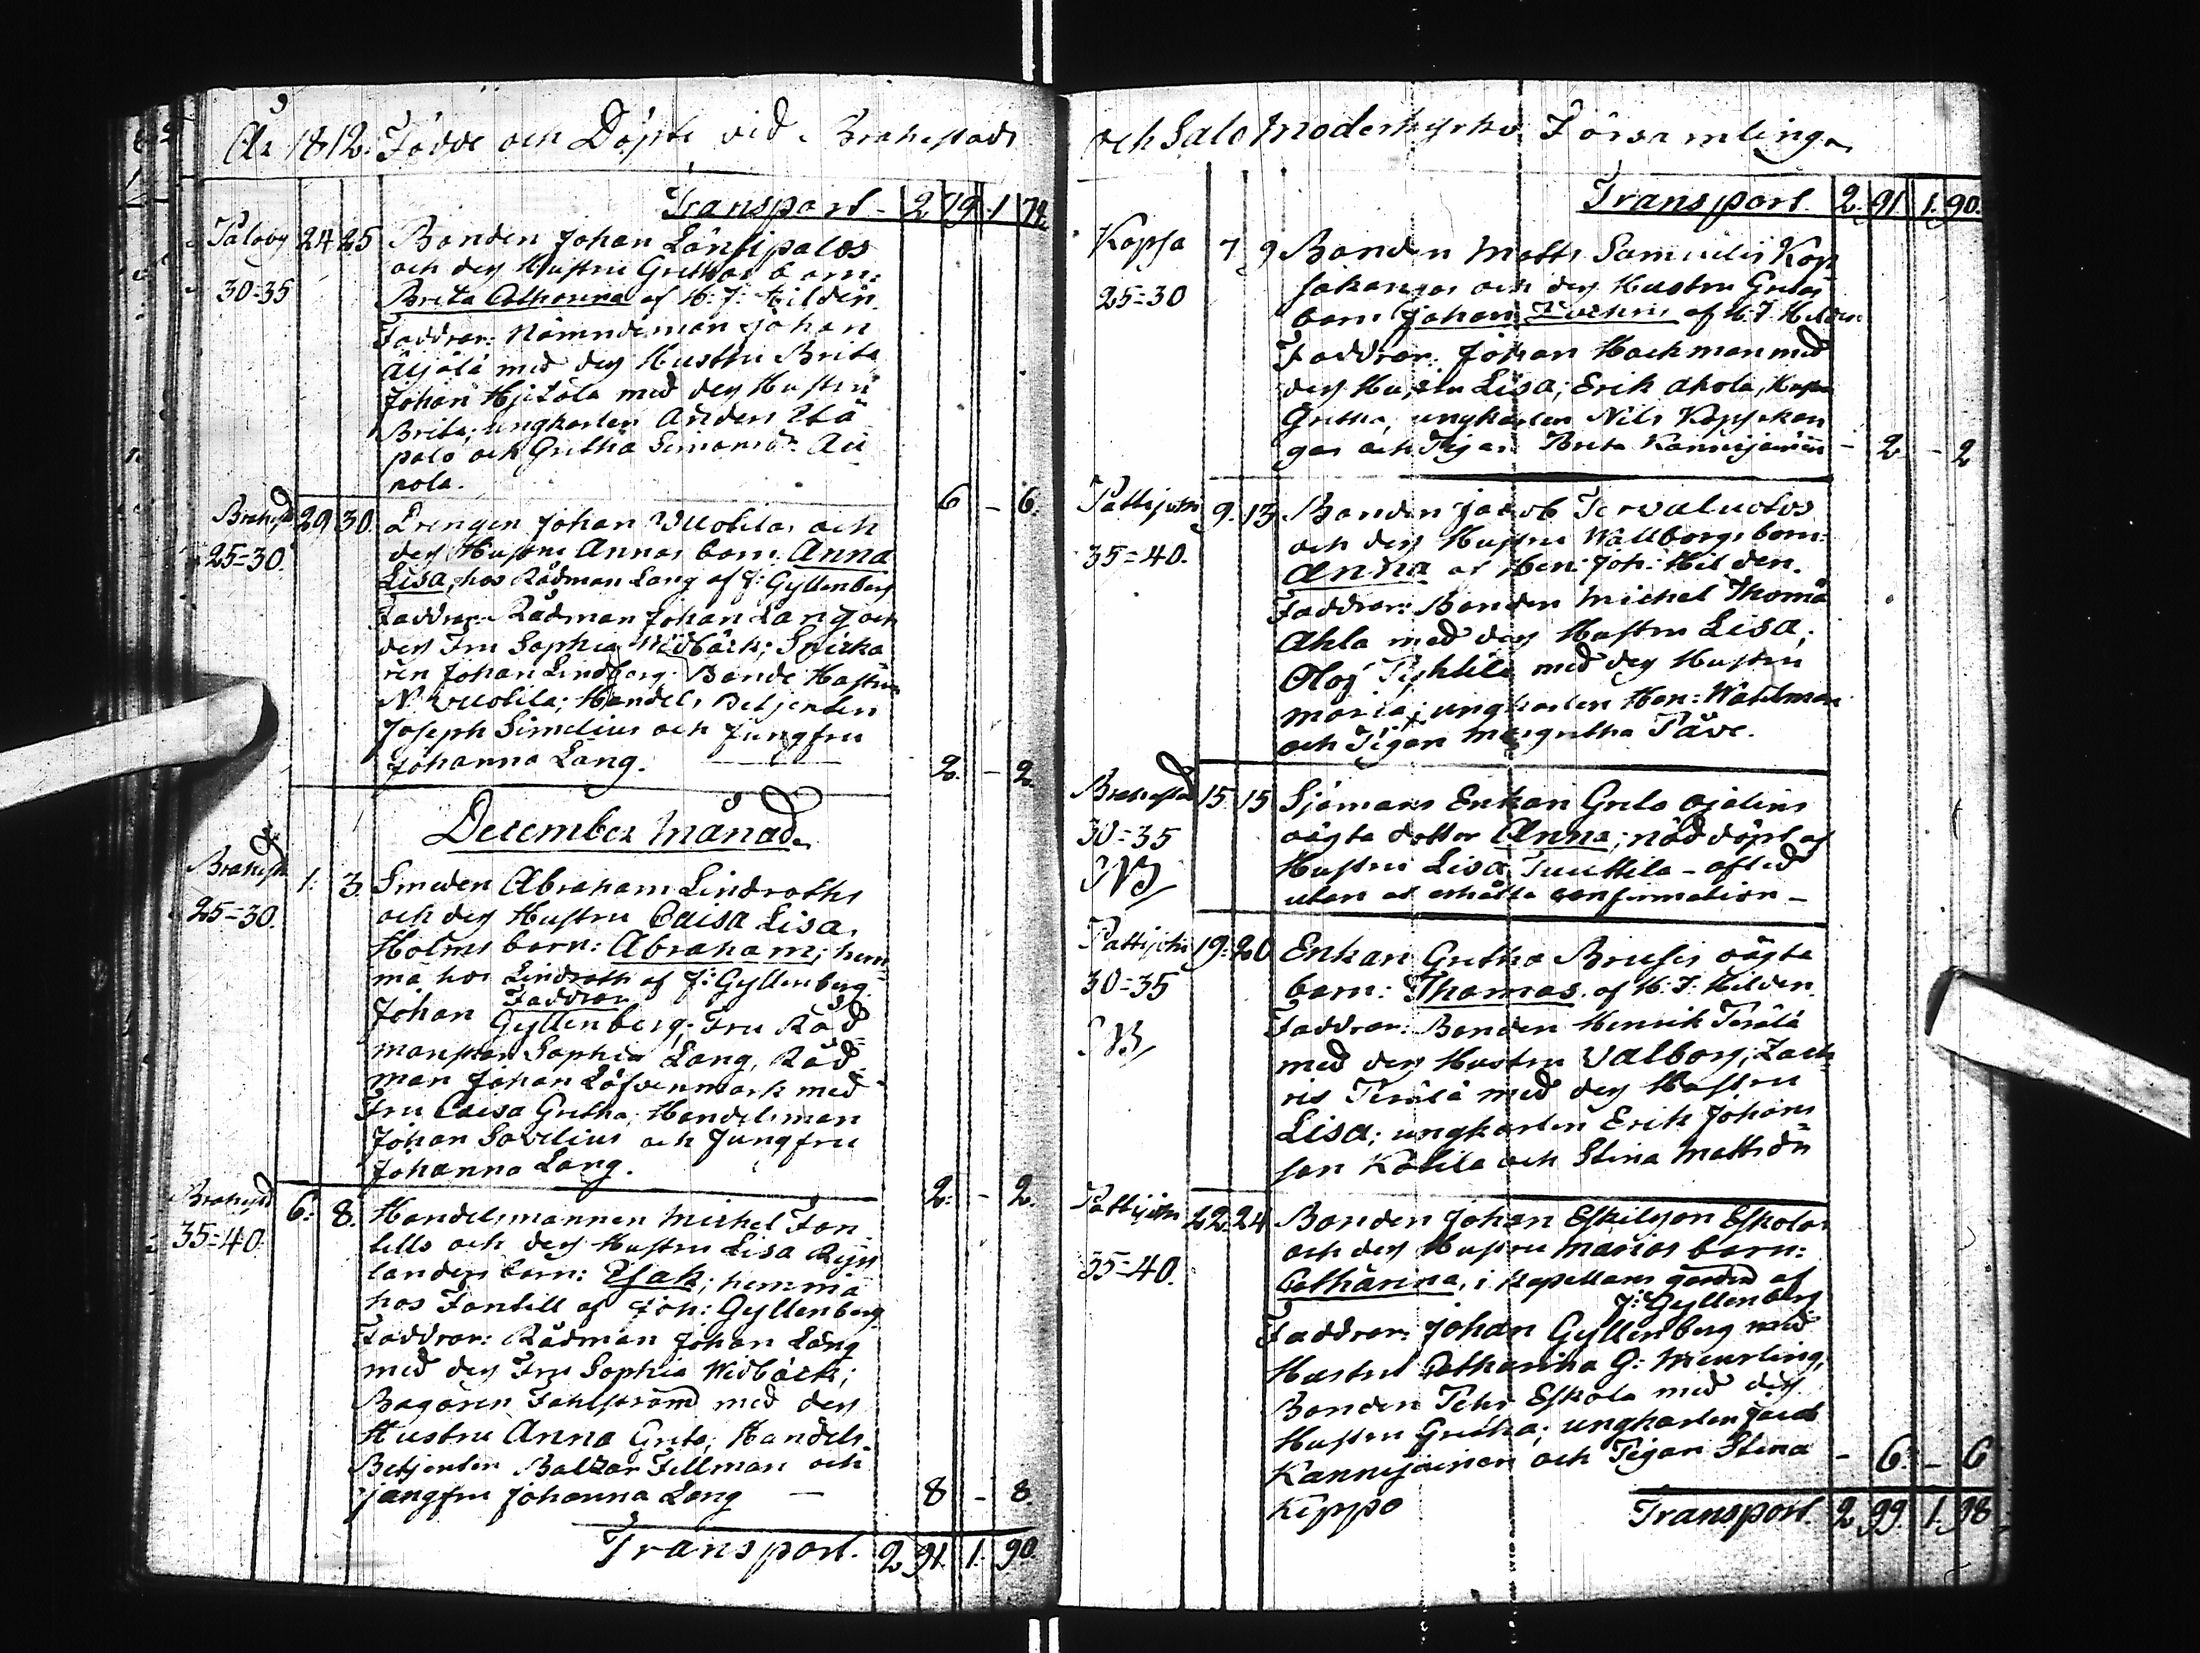 År 1812. Födde och Döpte vid Brahestads
Transport - 2 79 1 78
Paloby 24 25 Bonden Johan Länsipalos
och dess Hustru Grethas barn:
30=35 Brita Catharina af H: J: Hildén.
Faddrar: Nämndeman Johan
Äijälä med dess Hustru Brita
Johan Hjitala med dess Hustru
Brita; ungkarlen Anders Itä
palo och Gretha Simonsdr Au
nola. 6 - 6.
Brahestd 29 30. Drengen Johan Uuotilas och
25=30. dess Hustru Annas barn: Anna
Lisa, hos Rådman Lang af J: Gyllenberg
Faddrar: Rådman Johan Lang och
dess Fru Sophia Widbäck; Snicka
ren Johan Lindberg; Bonde Hustrun
N. Uuotila; Handels Betjenten
Joseph Simelius och Jungfru
Johanna Lang. 2. - 2
December månad.
Brahestd 1. 3 Smeden Abraham Lindroths
25=30. och dess Hustru Caisa Lisa
Holms barn: Abraham; hem
ma hos Lindroth af J: Gyllenberg
Faddrar
Johan Gyllenberg; Fru Råd
manskan Sophia Lang, Råd
man Johan Löfvenmark med
Fru Caisa Gretha; Handelsman
Johan Sovelius och Jungfru
Johanna Lang. 2: - 2.
Brahestd 6: 8. Handelsmannen Michel Fon
35=40. tells och dess Hustru Lisa Rejn
landers barn: Isak; hemma
hos Fontell af Joh: Gyllenberg
Faddrar: Rådman Johan Lang
med dess Fru Sophia Widbäck;
Bagaren Fahlström med dess
Hustru Anna Greta; Handels
Betjenten Balzar Fellman och
jungfru Johanna Lang — 8 - 8.
Transport. 2 91. 1. 90.
och Salo Moderkyrko Församlingar
Transport. 2. 91. 1. 90.
Kopsa 7 9 Bonden Matts Samuelis Kop
25=30 sakangas och dess Hustru Gretas
barn Johan af H. J. Hilden
Faddrar: Johan Hackman med
dess Hustru Lisa; Erik Ahola, Hustru
Gretha, ungkarlen Nils Kopsakan
gas och Pigan Brita Kannusjärvin - 2 - 2
Pattijoki 9. 13 Bonden Jacob Tervaluotos
35=40. och dess Hustru Wallborgs barn:
Anna af Hen: Joh: Hilden.
Faddrar: Bonden Michel Thomä
Ahla med dess Hustru Lisa;
Olof med dess Hustru
Maria; ungkarlen Hen: Wahlman
och Pigan Margretha Påve.
Brahestad 15 15 Sjömans Enkan Greta Ojalins
30=35 oägta dotter Anna; nöddöpt af
NB Hustru Lisa Tuuttila - afled
utan at erhålla confirmation -
Pattijoki 19. 20 Enkan Gretha Brusis oägta
30=35 barn: Thomas. af H: J: Hilden.
Faddrar: Bonden Henrik Perälä
NB med dess Hustru Valborg; Zach
ris Perälä med dess Hustru
Lisa; ungkarlen Erik Johans
son Kotila och Stina Mattsdr
Pattijoki 22. 24 Bonden Johan Eskilsson Eskolas
35=40. och dess Hustru Marias barn:
Catharina, i kapellans garden af
J: Gyllenberg
Faddrar: Johan Gyllenberg med
Hustru Catharina G: Meurling,
Bonden Pehr Eskola med dess
Hustru Gretha; ungkarlen Jacob
Kannusjärven och Pigan Stina - 6: - 6
Kippo Transport. 2 99. 1. 98.